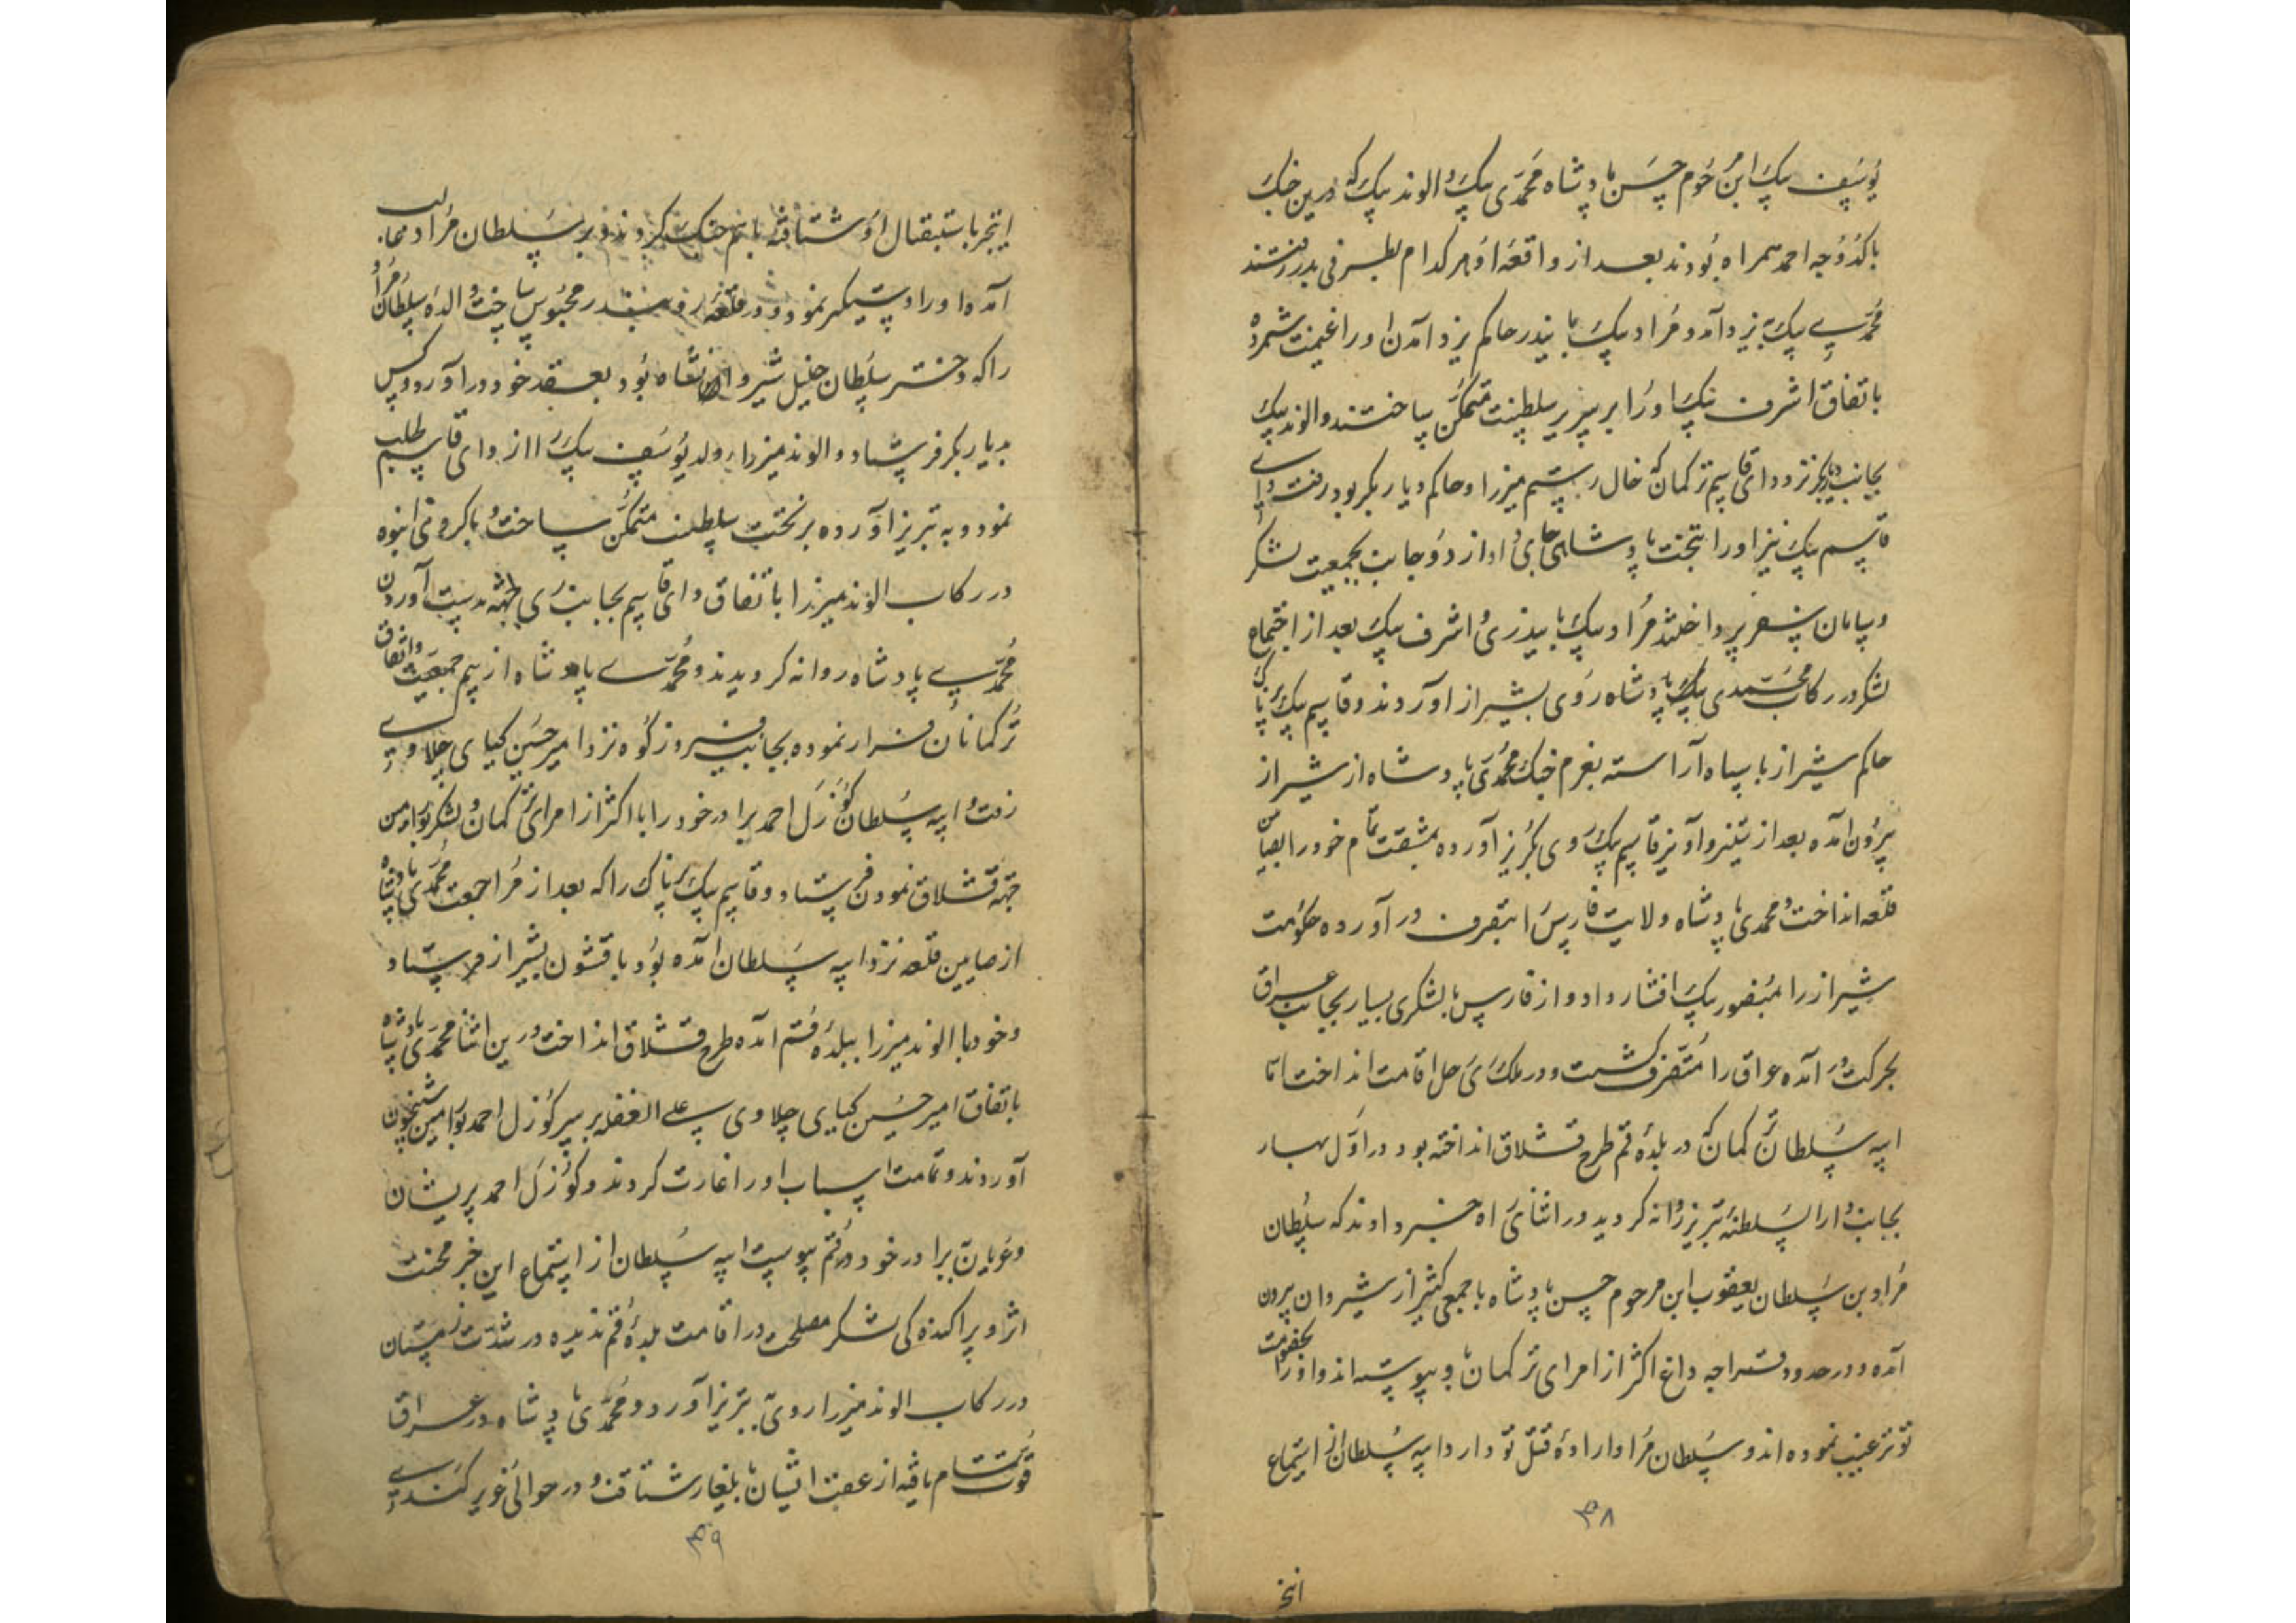 یوسف بیک ابن مرحوم حسن پادشاه محمدی بیک و الوند بیک که درین جنک
با کدوجه احمد همراه بودند بعد از واقعه او هر کدام بطرفی بدر رفتند
محمدی بیک به یزد آمد و مراد بیک بایندر حاکم یزد آمدن او را غنیمت شمرده
باتفاق اشرف بیک او را بر سریر سلطنت متمکن ساختند و الوند بیک
بجانب دیاربکر نزد دای قاسم ترکمان که خال رستم میرزا و حاکم دیاربکر بود رفت و دای
قاسم بیک نیز او را بتخت پادشاهی جای داد از دو جانب بجمعیت لشکر
و سامان سفر پرداختند مراد بیک بایندری و اشرف بیک بعد از اجتماع
لشکر در رکاب محمدی بیک پادشاه روی بشیراز آوردند و قاسم بیک پرناک که
حاکم شیراز با سپاه آراسته بعزم جنک محمدی پادشاه از شیراز
بیرون آمده بعد از ستیز و آویز قاسم بیک روی بکریز آورده بمشقت تمام خود را بصیامن
قلعه انداخت و محمدی پادشاه ولایت فارس را بتصرف در آورده حکومت
شیراز را بمنصور بیک افشار داد و از فارس با لشکری بسیار بجانب عراق
بحرکت در آمده عراق را متصرف کشت و در ملک ری رحل اقامت انداخت اما
ایبه سلطان ترکمان که در بلده قم طرح قشلاق انداخته بود در اول بهار
بجانب دار السلطنه تبریز روانه کردید در اثنای راه خبر دادند که سلطان
مراد بن سلطان یعقوب ابن مرحوم حسن پادشاه با جمعی کثیر از شیروان بیرون
آمده و در حدود قراجه داغ اکثر از امرای ترکمان باو پیوسته اند و او را بخصومت
تو ترغیب نموده اند و سلطان مراد اراده قتل تو دارد ایبه سلطان از استماع
۳۸
اینخ
اینخبر باستقبال او شتافته با هم جنک کردند ظفر بر سلطان مراد غالب
آمده او را دستیکر نمود و در قلعه محبوس ساخت و والده سلطان مراد
را که دختر سلطان خلیل شیروانشاه بود بعقد خود در آورد و کس
بدیاربکر فرستاد و الوند میرزا ولد یوسف بیک را از دای قاسم طلب
نمود و به تبریز آورده بر تخت سلطنت متمکن ساخت و با کروهی انبوه
در رکاب الوند میرزا باتفاق دای قاسم بجانب ری جهة بدست آوردن
محمدی پادشاه روانه کردیدند و محمدی پادشاه از بیم جمعیت و اتفاق
ترکمانان فرار نموده بجانب فیروزکوه نزد امیر حسین کیای چلاوی
رفت و ایبه سلطان کوزل احمد برادر خود را با اکثر از امرای ترکمان و لشکر بورامین
جهة قشلاق نمودن فرستاد و قاسم بیک پرناک را که بعد از مراجعت محمدی پادشاه
از صیامن قلعه نزد ایبه سلطان آمده بود با قشون بشیراز فرستاد
و خود با الوند میرزا ببلده قم آمده طرح قشلاق انداخت درین اثنا محمدی پادشاه
باتفاق امیر حسین کیای چلاوی علی الغفله بر سر کوزل احمد بورامین شبیخون
آوردند و تمامت اسباب او را غارت کردند و کوزل احمد پریشان
و عریان ببرادر خود در قم پیوست ایبه سلطان از استماع این خبر محنت
اثر و پراکنده کی لشکر مصلحت در اقامت بلده قم ندیده در شدت زمستان
در رکاب الوند میرزا روی بتبریز آورد و محمدی پادشاه در عراق
قوت تمام یافته از عقب ایشان بایلغار شتافت و در حوالی
۳۹